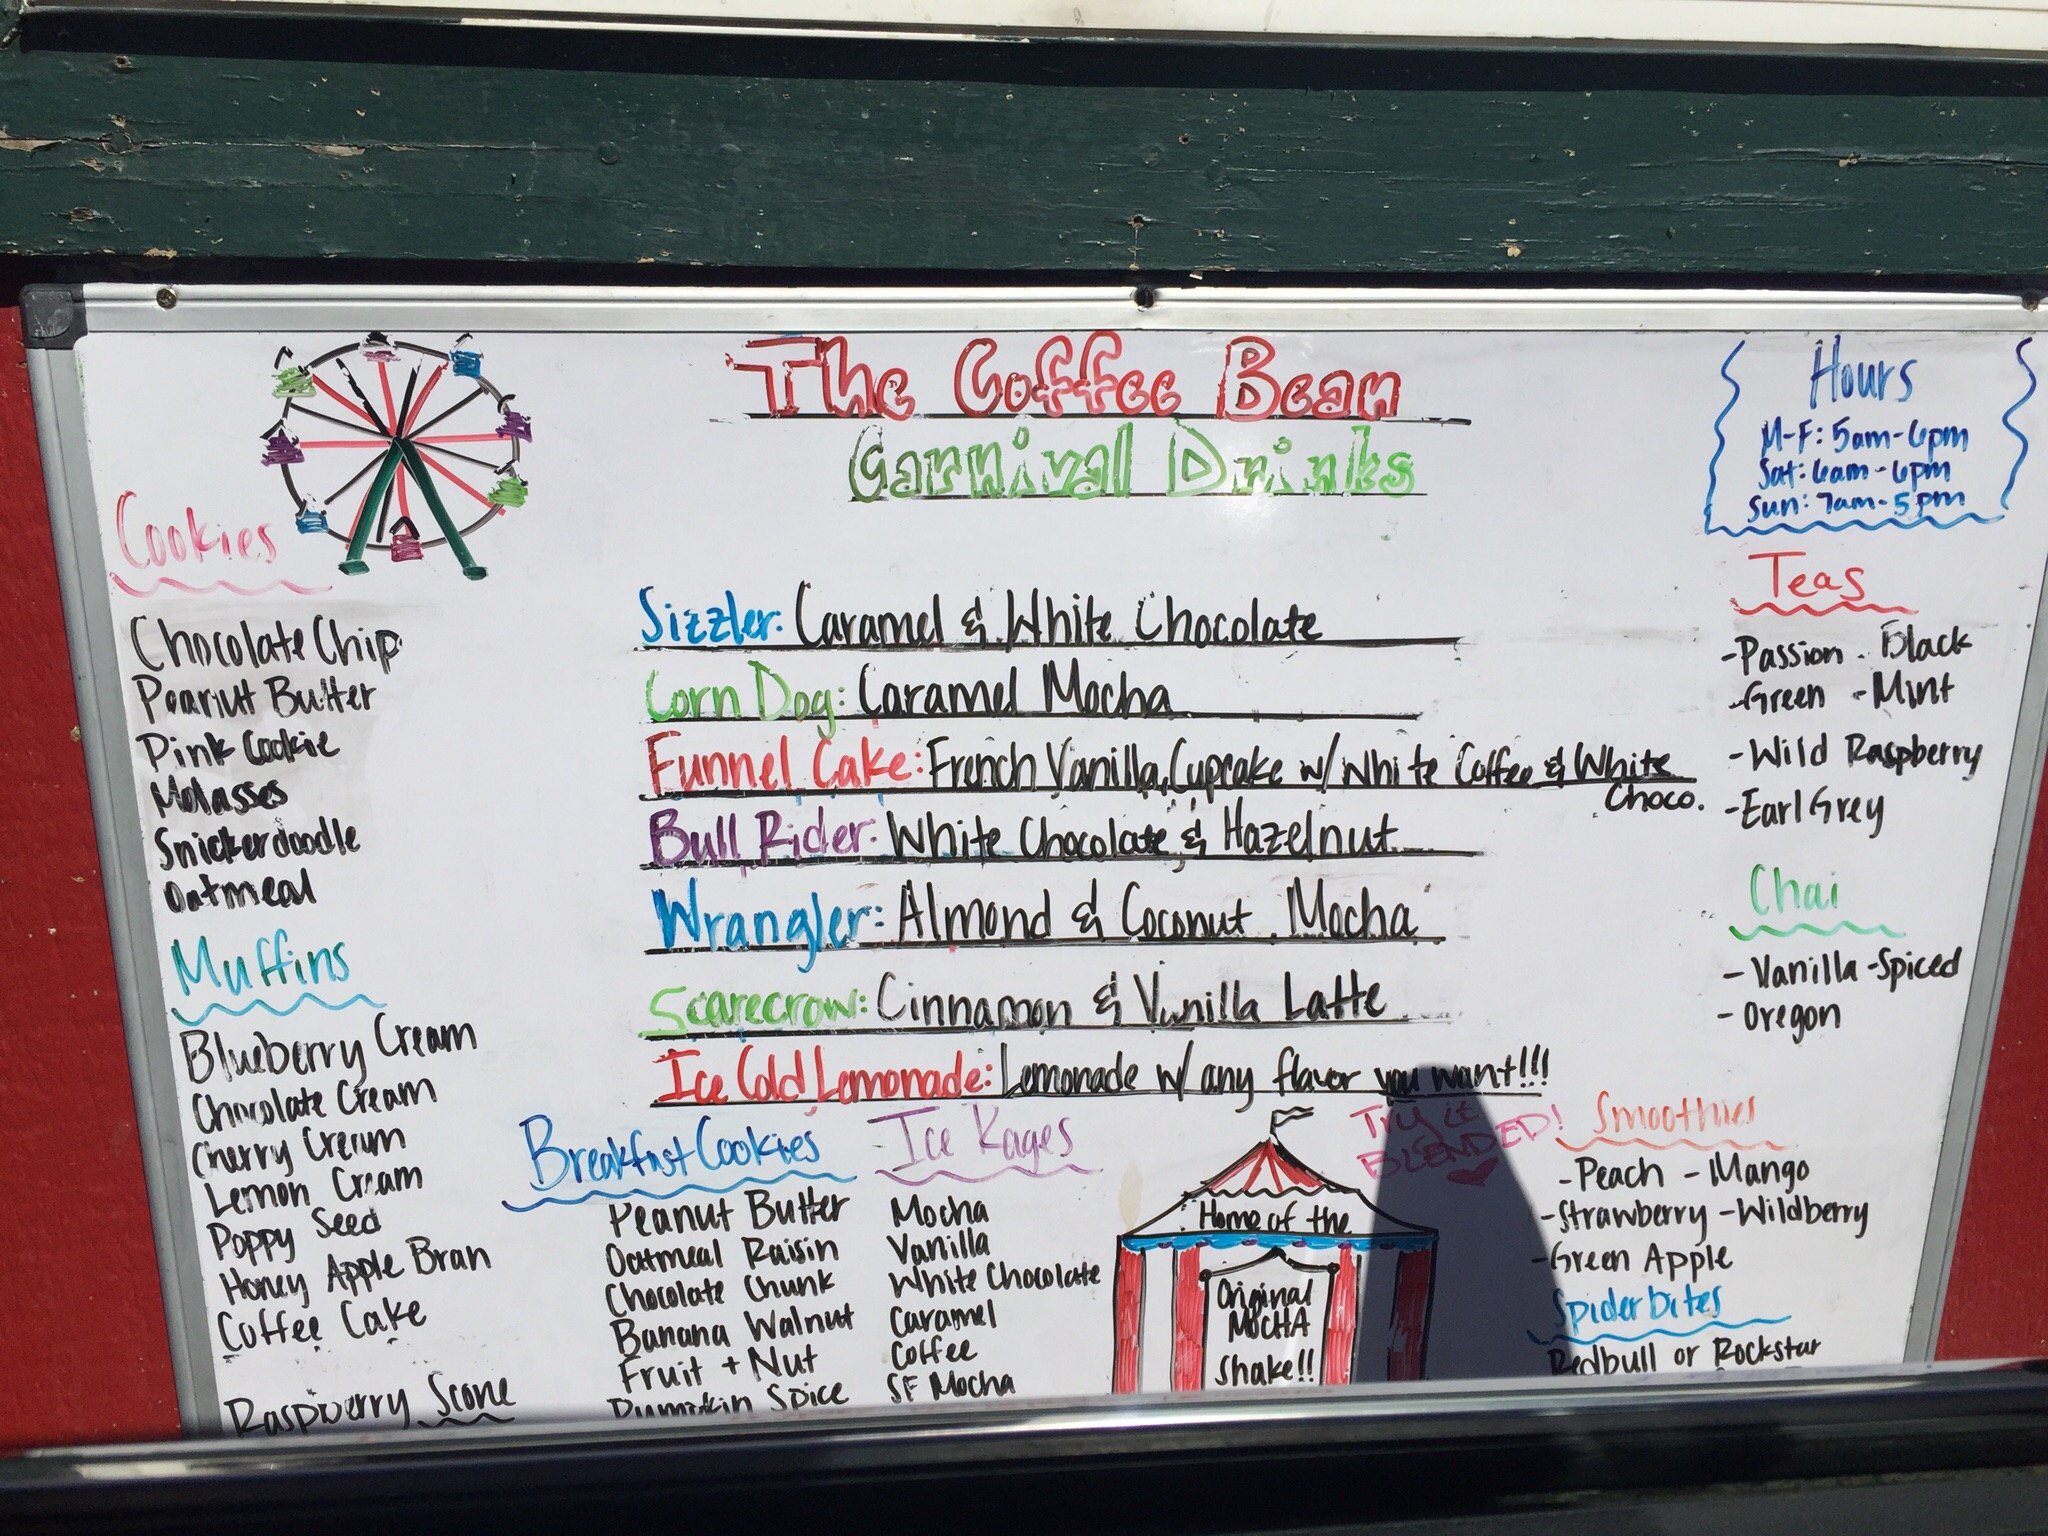 The Coffee Bean
Carnival Drinks
Hours
M-F: 5am-6pm
Sat: 6am-6pm
Sun: 7am-5pm
Cookies
Chocolate Chip
Peanut Butter
Pink Cookie
Molasses
Snickerdoodle
Oatmeal
Muffins
Blueberry Cream
Chocolate Cream
Cherry Cream
Lemon Cream
Poppy Seed
Honey Apple Bran
Coffee Cake
Raspberry Scone
Sizzler: Caramel & White Chocolate
Corn Dog: Caramel Mocha
Funnel Cake: French Vanilla, Cupcake w/ White Coffee & White
Choco.
Bull Rider: White Chocolate & Hazelnut
Wrangler: Almond & Coconut Mocha
Scarecrow: Cinnamon & Vanilla Latte
Ice Cold Lemonade: Lemonade w/ any flavor you want!!!
Try it
BLENDED!
Breakfast Cookies
Peanut Butter
Oatmeal Raisin
Chocolate Chunk
Banana Walnut
Fruit + Nut
Pumpkin Spice
Ice Kages
Mocha
Vanilla
White Chocolate
Caramel
Coffee
SF Mocha
Home of the
Original
MOCHA
Shake!!
Teas
-Passion - Black
-Green -Mint
-Wild Raspberry
-Earl Grey
Chai
- Vanilla -Spiced
- Oregon
Smoothies
-Peach - Mango
-Strawberry -Wildberry
-Green Apple
Spiderbites
Redbull or Rockstar